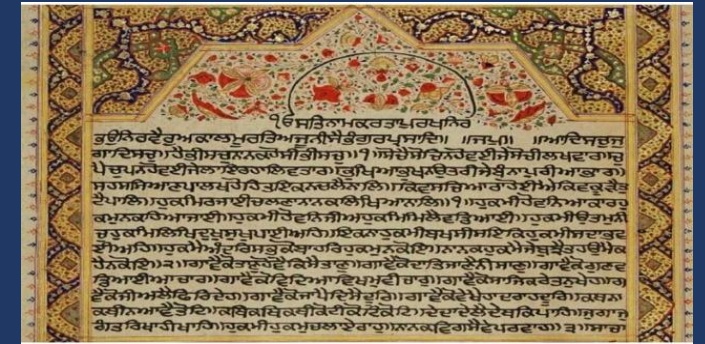 ੴਸਤਿਨਾਮਕਰਤਾਪੁਰਖੁਨਿਰ
ਭਉਨਿਰਵੈਰੁਅਕਾਲਮੂਰਤਿਅਜੂਨੀਸੈਭੰਗੁਰਪ੍ਰਸਾਦਿ॥ ॥ਜਪੁ॥ ॥ਆਦਿਸਚੁਜੁ
ਗਾਦਿਸਚੁ॥ਹੈਭੀਸਚੁਨਾਨਕਹੋਸੀਭੀਸਚੁ॥੧॥ਸੋਚੈਸੋਚਿਨਹੋਵਈਜੇਸੋਚੀਲਖਵਾਰ॥ਚੁ
ਪੈਚੁਪਨਹੋਵਈਜੇਲਾਇਰਹਾਲਿਵਤਾਰ॥ਭੁਖਿਆਭੁਖਨਉਤਰੀਜੇਬੰਨਾਪੁਰੀਆਭਾਰ॥
ਸਹਸਸਿਆਣਪਾਲਖਹੋਹਿਤਇਕਨਚਲੈਨਾਲਿ॥ਕਿਵਸਚਿਆਰਾਹੋਈਐਕਿਵਕੂੜੈਤੁ
ਟੈਪਾਲਿ॥ਹੁਕਮਿਰਜਾਈਚਲਣਾਨਾਨਕਲਿਖਿਆਨਾਲਿ॥੧॥ਹੁਕਮੀਹੋਵਨਿਆਕਾਰਹੁ
ਕਮੁਨਕਹਿਆਜਾਈ॥ਹੁਕਮੀਹੋਵਨਿਜੀਅਹੁਕਮਿਮਿਲੈਵਡਿਆਈ॥ਹੁਕਮੀਉਤਮੁਨੀ
ਚੁਹੁਕਮਿਲਿਖਿਦੁਖਸੁਖਪਾਈਅਹਿ॥ਇਕਨਾਹੁਕਮੀਬਖਸੀਸਇਕਿਹੁਕਮੀਸਦਾਭਵ
ਈਅਹਿ॥ਹੁਕਮੈਅੰਦਰਿਸਭੁਕੋਬਾਹਰਿਹੁਕਮੁਨਕੋਇ॥ਨਾਨਕਹੁਕਮੈਜੇਬੁਝੈਤਹਉਮੈਕ
ਹੈਨਕੋਇ॥੨॥ਗਾਵੈਕੋਤਾਣੁਹੋਵੈਕਿਸੈਤਾਣੁ॥ਗਾਵੈਕੋਦਾਤਿਜਾਣੈਨੀਸਾਣੁ॥ਗਾਵੈਕੋਗੁਣਵ
ਡਿਆਈਆਚਾਰ॥ਗਾਵੈਕੋਵਿਦਿਆਵਿਖਮੁਵੀਚਾਰੁ॥ਗਾਵੈਕੋਸਾਜਿਕਰੇਤਨੁਖੇਹ॥ਗਾ
ਵੈਕੋਜੀਅਲੈਫਿਰਿਦੇਹ॥ਗਾਵੈਕੋਜਾਪੈਦਿਸੈਦੂਰਿ॥ਗਾਵੈਕੋਵੇਖੈਹਾਦਰਾਹਦੂਰਿ॥ਕਥਨਾ
ਕਥੀਨਆਵੈਤੋਟਿ॥ਕਥਿਕਥਿਕਥੀਕੋਟੀਕੋਟਿਕੋਟਿ॥ਦੇਦਾਦੇਲੈਦੇਥਕਿਪਾਹਿ॥ਜੁਗਾਜੁ
ਗੰਤਰਿਖਾਹੀਖਾਹਿ॥ਹੁਕਮੀਹੁਕਮੁਚਲਾਏਰਾਹੁ॥ਨਾਨਕਵਿਗਸੈਵੇਪਰਵਾਹੁ॥੩॥ਸਾਚਾ